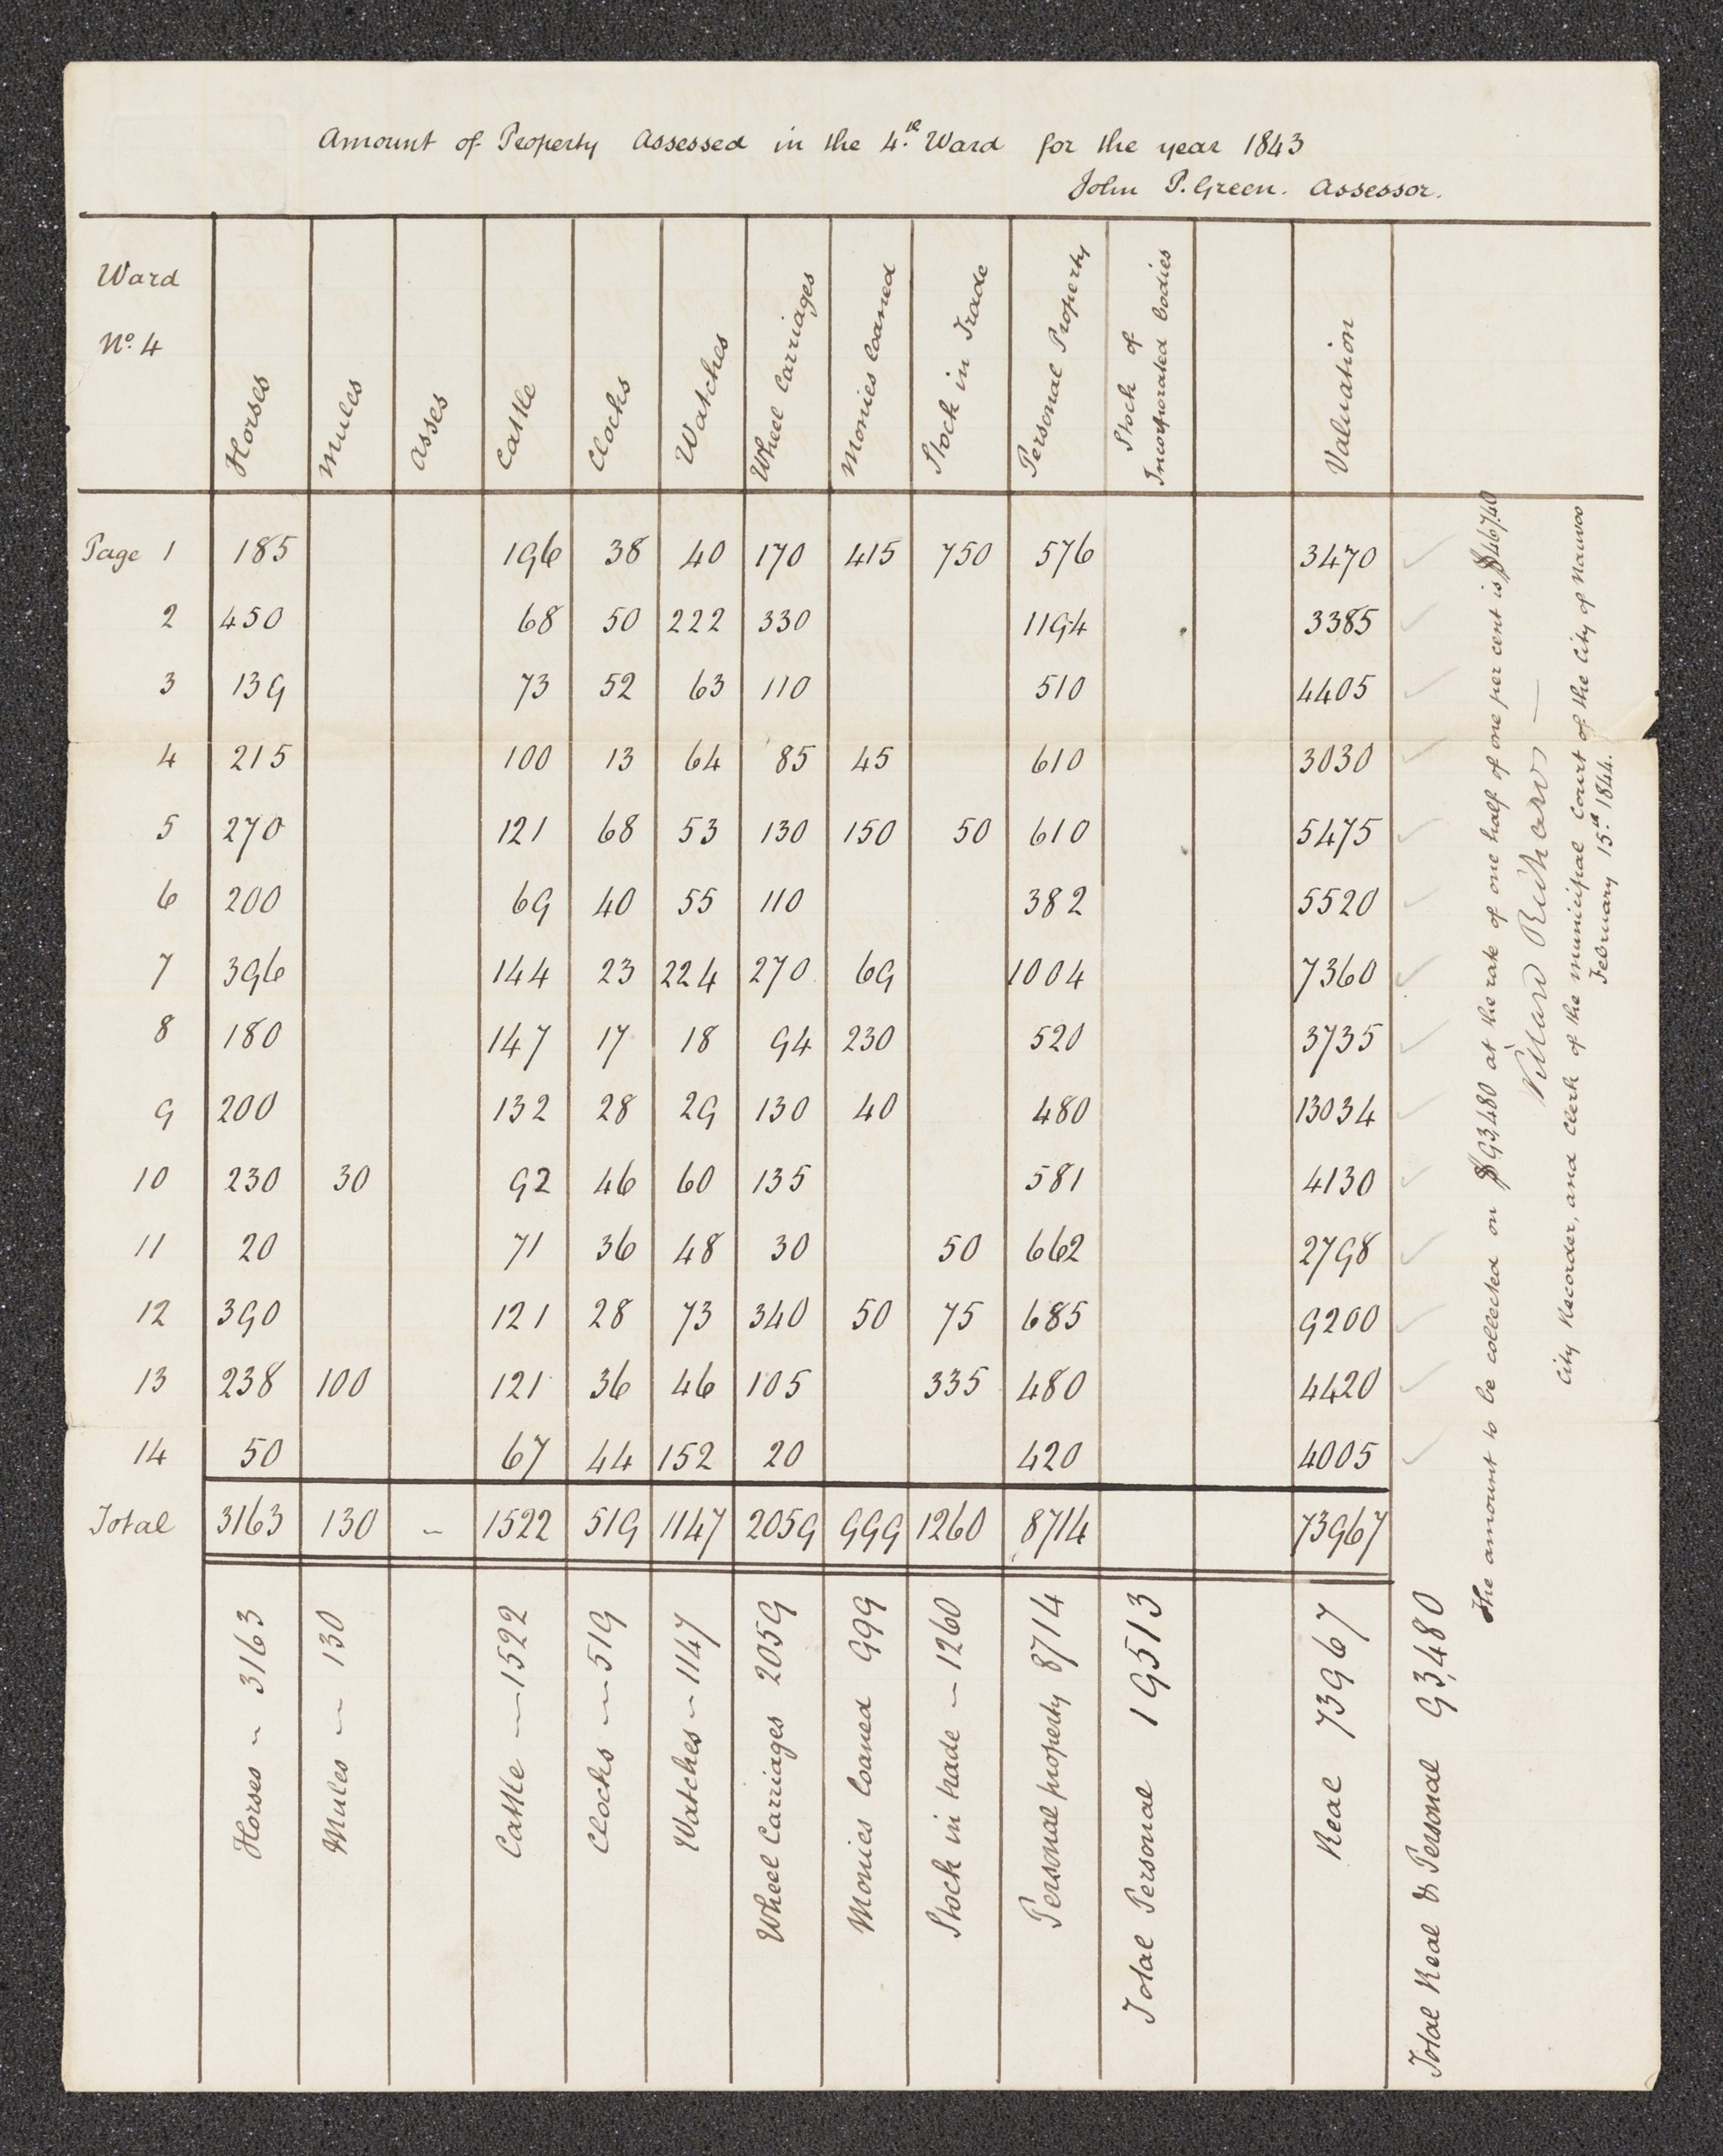 Amount of Property Assessed in the 4.th Ward for the year 1843
John P. Green. Assessor.
Ward No. 4 | Horses | Mules | Asses | Cattle | Clocks | Watches | Wheel Carriages | Monies loaned | Stock in Trade | Personal Property | Stock of Incorporated bodies | | Valuation
Page 1 | 185 | | | 196 | 38 | 40 | 170 | 415 | 750 | 576 | | | 3470 ✓
2 | 450 | | | 68 | 50 | 222 | 330 | | | 1194 | | | 3385 ✓
3 | 139 | | | 73 | 52 | 63 | 110 | | | 510 | | | 4405 ✓
4 | 215 | | | 100 | 13 | 64 | 85 | 45 | | 610 | | | 3030 ✓
5 | 270 | | | 121 | 68 | 53 | 130 | 150 | 50 | 610 | | | 5475 ✓
6 | 200 | | | 69 | 40 | 55 | 110 | | | 382 | | | 5520 ✓
7 | 396 | | | 144 | 23 | 224 | 270 | 69 | | 1004 | | | 7360 ✓
8 | 180 | | | 147 | 17 | 18 | 94 | 230 | | 520 | | | 3735 ✓
9 | 200 | | | 132 | 28 | 29 | 130 | 40 | | 480 | | | 13034 ✓
10 | 230 | 30 | | 92 | 46 | 60 | 135 | | | 581 | | | 4130 ✓
11 | 20 | | | 71 | 36 | 48 | 30 | | 50 | 662 | | | 2798 ✓
12 | 390 | | | 121 | 28 | 73 | 340 | 50 | 75 | 685 | | | 9200 ✓
13 | 238 | 100 | | 121 | 36 | 46 | 105 | | 335 | 480 | | | 4420 ✓
14 | 50 | | | 67 | 44 | 152 | 20 | | | 420 | | | 4005 ✓
Total | 3163 | 130 | – | 1522 | 519 | 1147 | 2059 | 999 | 1260 | 8714 | | | 73967
Horses – 3163
Mules – 130
Cattle – 1522
Clocks – 519
Watches – 1147
Wheel Carriages 2059
Monies loaned 999
Stock in trade – 1260
Personal property 8714
Total Personal 19513
Real 73967
Total Real & Personal 93,480
The amount to be collected on $93,480 at the rate of one half of one per cent is $467.40
Willard Richards —
City Recorder, and Clerk of the municipal Court of the City of Nauvoo
February 15.th 1844.